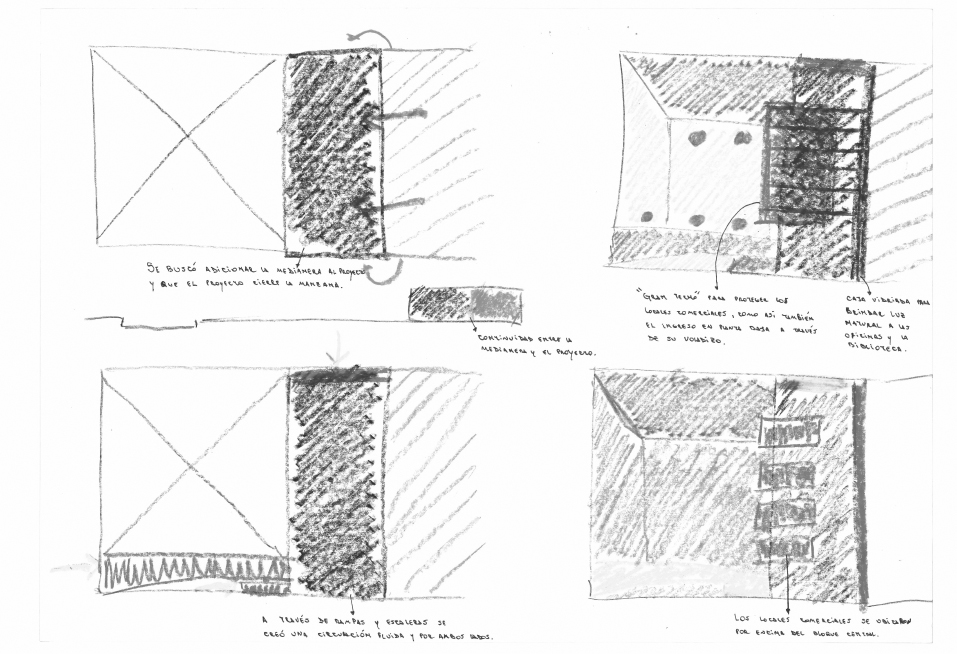 SE BUSCÓ ADICIONAR LA MEDIANERA AL PROYECTO
Y QUE EL PROYECTO CIERRE LA MANZANA.
CONTINUIDAD ENTRE LA
MEDIANERA Y EL PROYECTO.
"GRAN TECHO" PARA PROTEGER LOS
LOCALES COMERCIALES, COMO ASÍ TAMBIÉN
EL INGRESO EN PLANTA BAJA A TRAVÉS
DE SU VOLADIZO.
CAJA VIDRIADA PARA
BRINDAR LUZ
NATURAL A LAS
OFICINAS Y LA
BIBLIOTECA.
A TRAVÉS DE RAMPAS Y ESCALERAS SE
CREÓ UNA CIRCULACIÓN FLUIDA Y POR AMBOS LADOS.
LOS LOCALES COMERCIALES SE UBICARON
POR ENCIMA DEL BLOQUE CENTRAL.